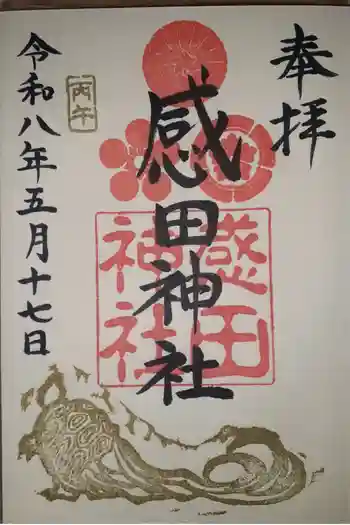 奉拝
感田神社
感田
神社
丙午
令和八年五月十七日